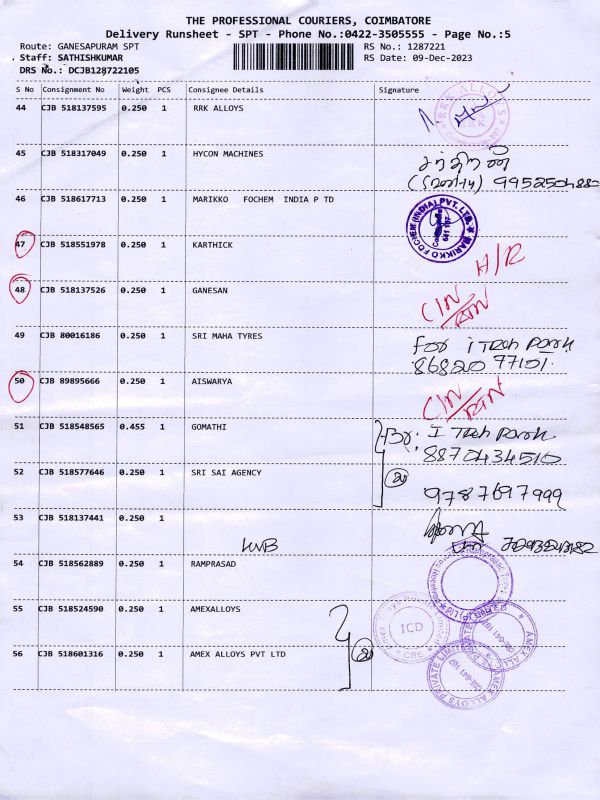 THE PROFESSIONAL COURIERS, COIMBATORE
Delivery Runsheet - SPT - Phone No.:0422-3505555 - Page No.:5
Route: GANESAPURAM SPT
RS No.: 1287221
Staff: SATHISHKUMAR
RS Date: 09-Dec-2023
DRS No.: DCJB128722105
S No Consignment No Weight PCS Consignee Details Signature
44 CJB 518137595 0.250 1 RRK ALLOYS
RRK ALLOYS
45 CJB 518317049 0.250 1 HYCON MACHINES
46 CJB 518617713 0.250 1 MARIKKO FOCHEM INDIA P TD
MARIKKO FOCHEM (INDIA) PVT. LTD.
47 CJB 518551978 0.250 1 KARTHICK
H/R
48 CJB 518137526 0.250 1 GANESAN
CIN/RTN
49 CJB 80016186 0.250 1 SRI MAHA TYRES
For i Tech Park
86820 77101
50 CJB 89895666 0.250 1 AISWARYA
CIN/RTN
51 CJB 518548565 0.455 1 GOMATHI
I Tech Park
8870434510
52 CJB 518577646 0.250 1 SRI SAI AGENCY
9787697999
53 CJB 518137441 0.250 1
KVB
54 CJB 518562889 0.250 1 RAMPRASAD
55 CJB 518524590 0.250 1 AMEXALLOYS
ICD
56 CJB 518601316 0.250 1 AMEX ALLOYS PVT LTD
AMEX ALLOYS PRIVATE LIMITED